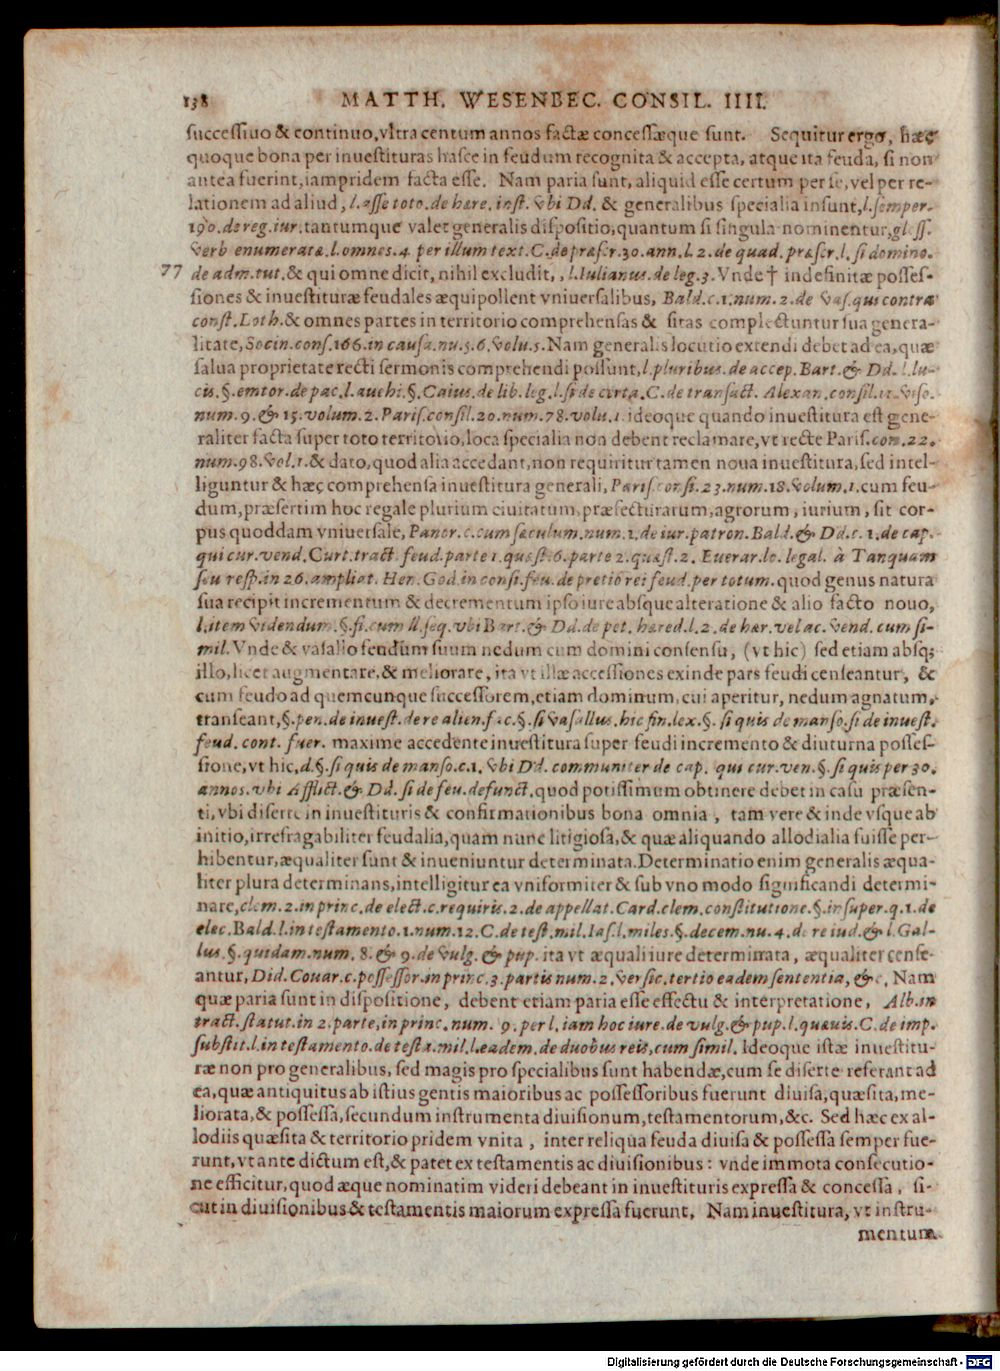 138 MATTH. WESENBEC. CONSIL. IIII.
successiuo & continuo, vltra centum annos factæ concessæque sunt. Sequitur ergo, hæc
quoque bona per inuestituras hasce in feudum recognita & accepta, atque ita feuda, si non
antea fuerint, iampridem facta esse. Nam paria sunt, aliquid esse certum per se, vel per re-
lationem ad aliud, l. asse toto. de hære. inst. vbi Dd. & generalibus specialia insunt, l. semper.
190. de reg. iur. tantumque valet generalis dispositio, quantum si singula nominentur, gloss.
verb enumerata. l. omnes. 4. per illum text. C. de præscr. 30. ann. l. 2. de quad. præscr. l. si domino.
77 de adm. tut. & qui omne dicit, nihil excludit, , l. Iulianus. de leg. 3. Vnde † indefinitæ posses-
siones & inuestituræ feudales æquipollent vniuersalibus, Bald. c. 1. num. 2. de vas. qui contra
const. Loth. & omnes partes in territorio comprehensas & sitas complectuntur sua genera-
litate, Socin. cons. 166. in causa. nu. 5. 6. volu. 5. Nam generalis locutio extendi debet ad ea, quæ
salua proprietate recti sermonis comprehendi possunt, l. pluribus. de accep. Bart. & Dd. l. lu-
cis. §. emtor. de pac. l. auchi. §. Caius. de lib. leg. l. si de certa. C. de transact. Alexan. consil. 11. viso.
num. 9. & 15. volum. 2. Paris. consil. 20. num. 78. volu. 1. ideoque quando inuestitura est gene-
raliter facta super toto territorio, loca specialia non debent reclamare, vt recte Paris. con. 22.
num. 98. vol. 1. & dato, quod alia accedant, non requiritur tamen noua inuestitura, sed intel-
liguntur & hæc comprehensa inuestitura generali, Paris. consi. 23. num. 18. volum. 1. cum feu-
dum, præsertim hoc regale plurium ciuitatum, præfecturarum, agrorum, iurium, sit cor-
pus quoddam vniuersale, Panor. c. cum sæculum. num. 1. de iur. patron. Bald. & Dd. c. 1. de cap.
qui cur. vend. Curt. tract. feud. parte 1. quæst. 6. parte 2. quæst. 2. Euerar. lo. legal. à Tanquam
seu resp. in 26. ampliat. Hen. God. in consi. feu. de pretio rei feud. per totum. quod genus natura
sua recipit incrementum & decrementum ipso iure absque alteratione & alio facto nouo,
l. item videndum. §. fi. cum ll. seq. vbi Bart. & Dd. de pet. hæred. l. 2. de hær. vel ac. vend. cum si-
mil. Vnde & vasallo feudum suum nedum cum domini consensu, (vt hic) sed etiam absq;
illo, licet augmentare, & meliorare, ita vt illæ accessiones exinde pars feudi censeantur, &
cum feudo ad quemcunque successorem, etiam dominum, cui aperitur, nedum agnatum,
transeant, §. pen. de inuest. de re alien. fac. §. si vasallus. hic fin. lex. §. si quis de manso. si de inuest.
feud. cont. fuer. maxime accedente inuestitura super feudi incremento & diuturna posses-
sione, vt hic. d. §. si quis de manso. c. 1. vbi Dd. communiter de cap. qui cur. ven. §. si quis per 30.
annos. vbi Afflict. & Dd. si de feu. defunct. quod potissimum obtinere debet in casu præsen-
ti, vbi diserte in inuestituris & confirmationibus bona omnia, tam vere & inde vsque ab
initio, irrefragabiliter feudalia, quam nunc litigiosa, & quæ aliquando allodialia fuisse per-
hibentur, æqualiter sunt & inueniuntur determinata. Determinatio enim generalis æqua-
liter plura determinans, intelligitur ea vniformiter & sub vno modo significandi determi-
nare, clem. 2. in princ. de elect. c. requiris. 2. de appellat. Card. clem. constitutione. §. insuper. q. 1. de
elec. Bald. l. in testamento. 1. num. 12. C. de test. mil. Ias. l. miles. §. decem. nu. 4. de re iud. & l. Gal-
lus. §. quidam. num. 8. & 9. de vulg. & pup. ita vt æquali iure determinata, æqualiter cense-
antur, Did. Couar. c. possessor. in princ. 3. partis num. 2. versic. tertio eadem sententia, &c. Nam
quæ paria sunt in dispositione, debent etiam paria esse effectu & interpretatione, Alb. in
tract. statut. in 2. parte, in princ. num. 9. per l. iam hoc iure. de vulg. & pup. l. quauis. C. de imp.
substit. l. in testamento. de testa. mil. l. eadem. de duobus reis, cum simil. Ideoque istæ inuestitu-
ræ non pro generalibus, sed magis pro specialibus sunt habendæ, cum se diserte referant ad
ea, quæ antiquitus ab istius gentis maioribus ac possessoribus fuerunt diuisa, quæsita, me-
liorata, & possessa, secundum instrumenta diuisionum, testamentorum, &c. Sed hæc ex al-
lodiis quæsita & territorio pridem vnita, inter reliqua feuda diuisa & possessa semper fue-
runt, vt ante dictum est, & patet ex testamentis ac diuisionibus: vnde immota consecutio-
ne efficitur, quod æque nominatim videri debeant in inuestituris expressa & concessa, si-
cut in diuisionibus & testamentis maiorum expressa fuerunt. Nam inuestitura, vt instru-
mentum
Digitalisierung gefördert durch die Deutsche Forschungsgemeinschaft - DFG